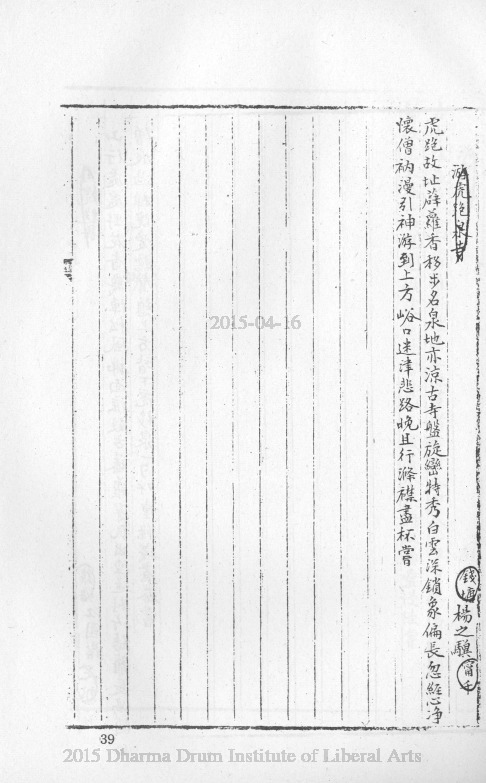 游虎跑泉寺
錢塘楊之驥
虎跑故址薜蘿香移步名泉地亦涼古寺盤旋巒特秀白雲深鎖象偏長忽經心淨
懷僧衲漫引神游到上方峪口迷津悲路晚且行滌襟盡杯嘗
2015-04-16
39
2015 Dharma Drum Institute of Liberal Arts